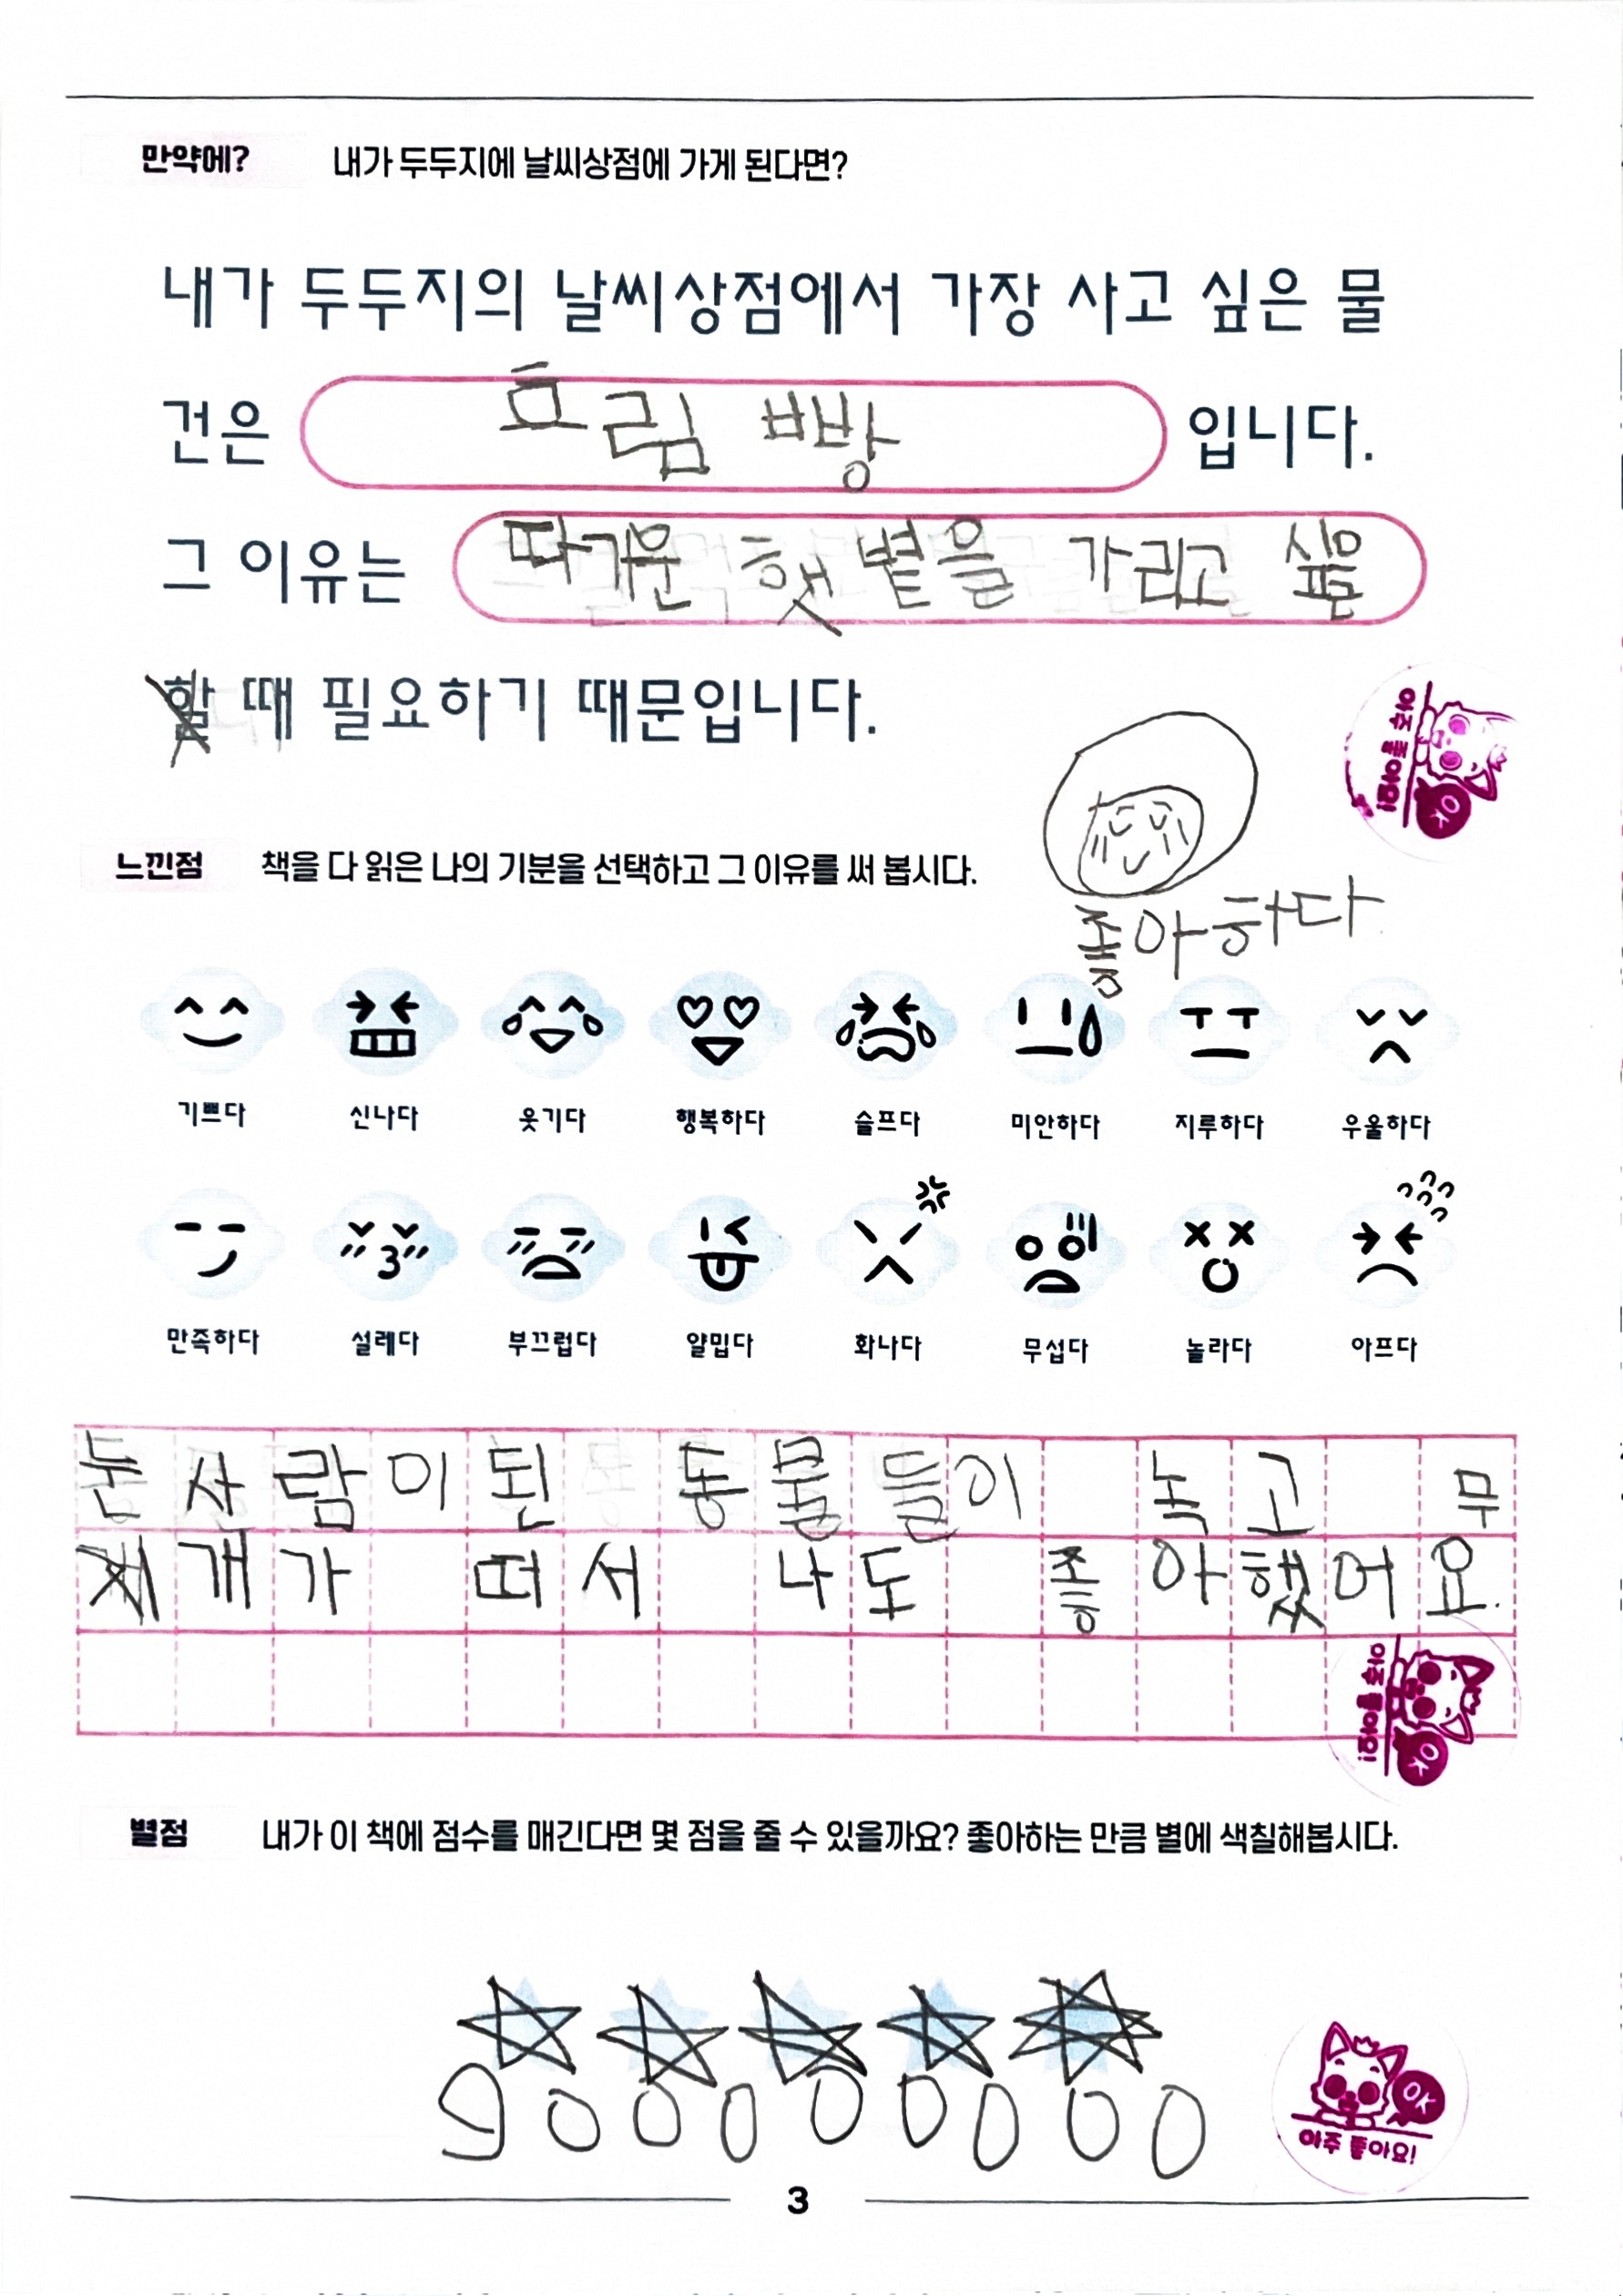 만약에? 내가 두두지에 날씨상점에 가게 된다면?
내가 두두지의 날씨상점에서 가장 사고 싶은 물
건은 흐림 빵 입니다.
그 이유는 따가운 햇볕을 가리고 싶을
할 때 필요하기 때문입니다.
아주 좋아요!
OK
느낀점 책을 다 읽은 나의 기분을 선택하고 그 이유를 써 봅시다.
좋아하다
기쁘다 신나다 웃기다 행복하다 슬프다 미안하다 지루하다 우울하다
만족하다 설레다 부끄럽다 얄밉다 화나다 무섭다 놀라다 아프다
눈사람이 된 동물들이 녹고 무
지개가 떠서 나도 좋아했어요.
아주 좋아요!
OK
별점 내가 이 책에 점수를 매긴다면 몇 점을 줄 수 있을까요? 좋아하는 만큼 별에 색칠해봅시다.
900000000
OK
아주 좋아요!
3